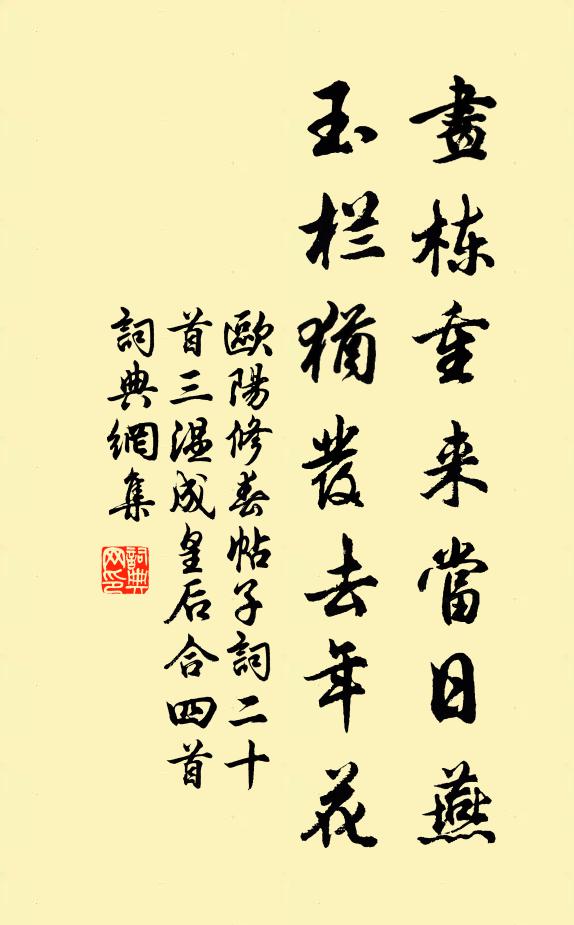 畫棟重来當日燕
玉栏猶發去年花
歐陽修春帖子詞二十
首三溫成皇后合四首
詞典網集
詞典网印